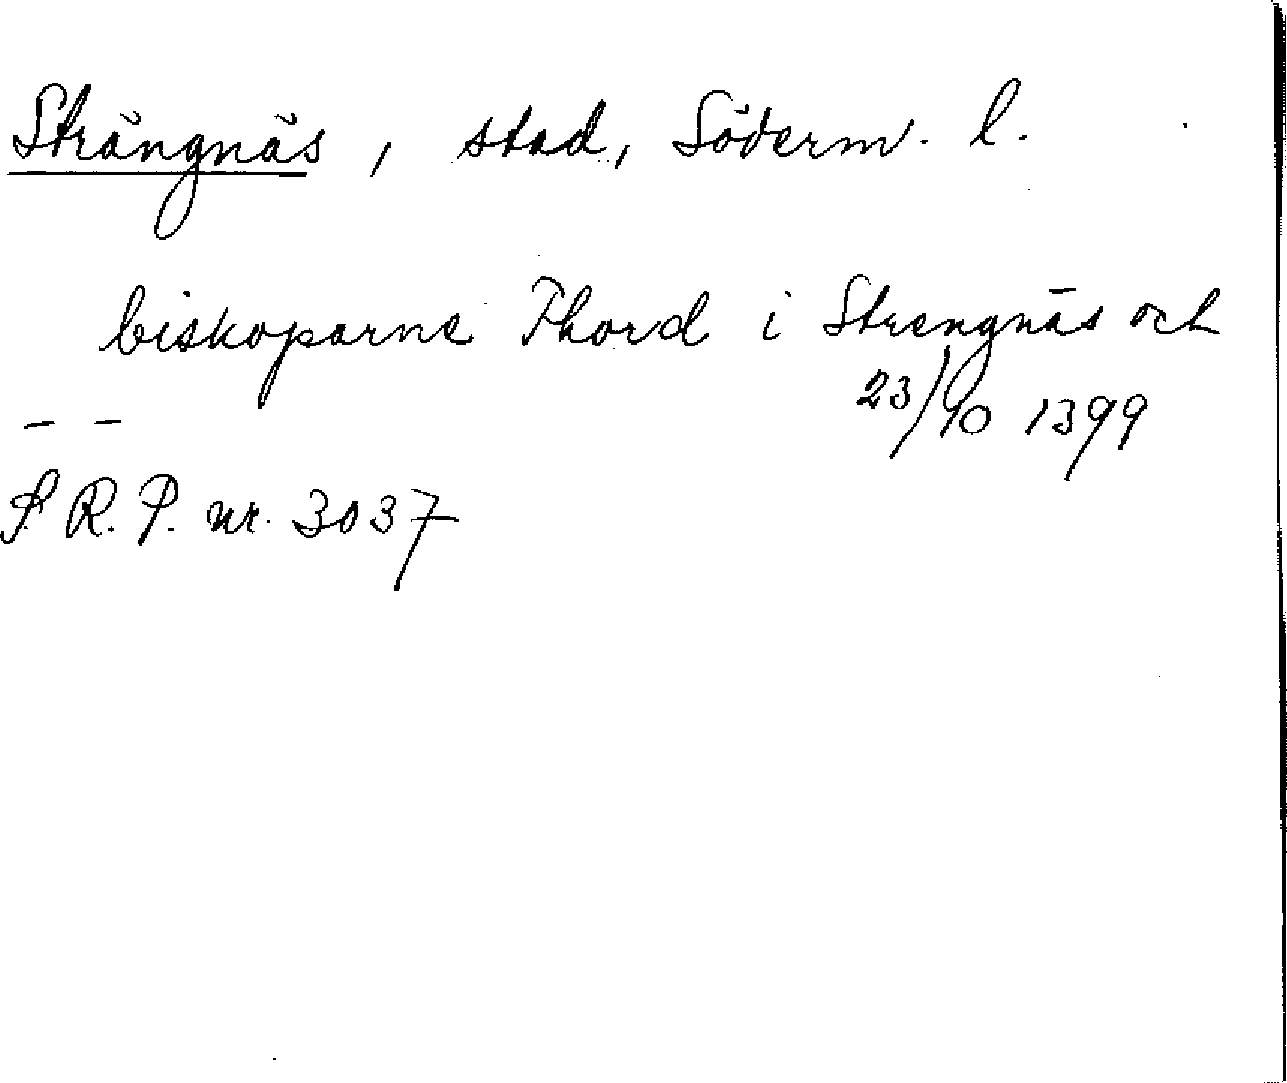 Strängnäs, stad, Söderm. l.
biskoparne Thord i Strengnäs och
– –
23/10 1399
S. R. P. nr. 3037